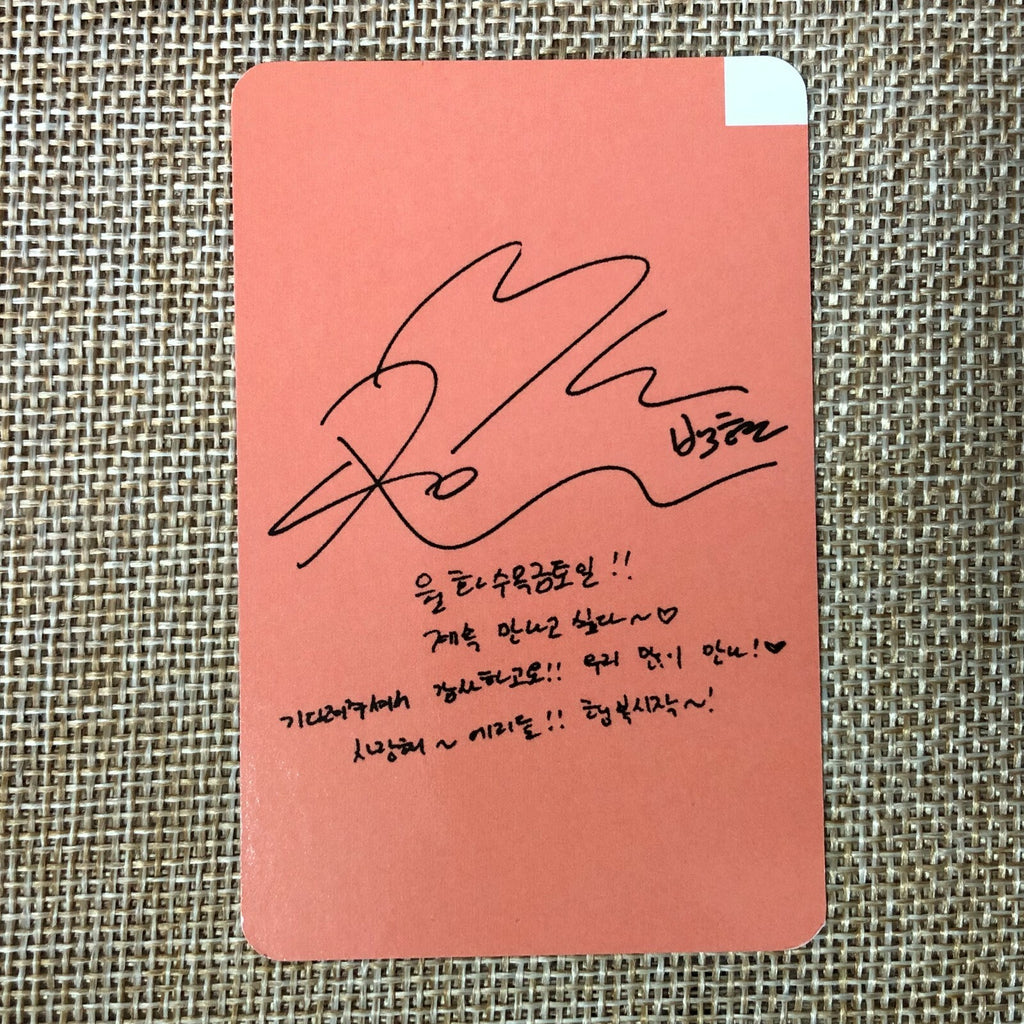 백현
월화수목금토일!!
계속 만나고 싶다~♡
기다려주셔서 감사하고요!! 우리 많이 만나!♥
사랑해~ 에리들!! 행복시작~!